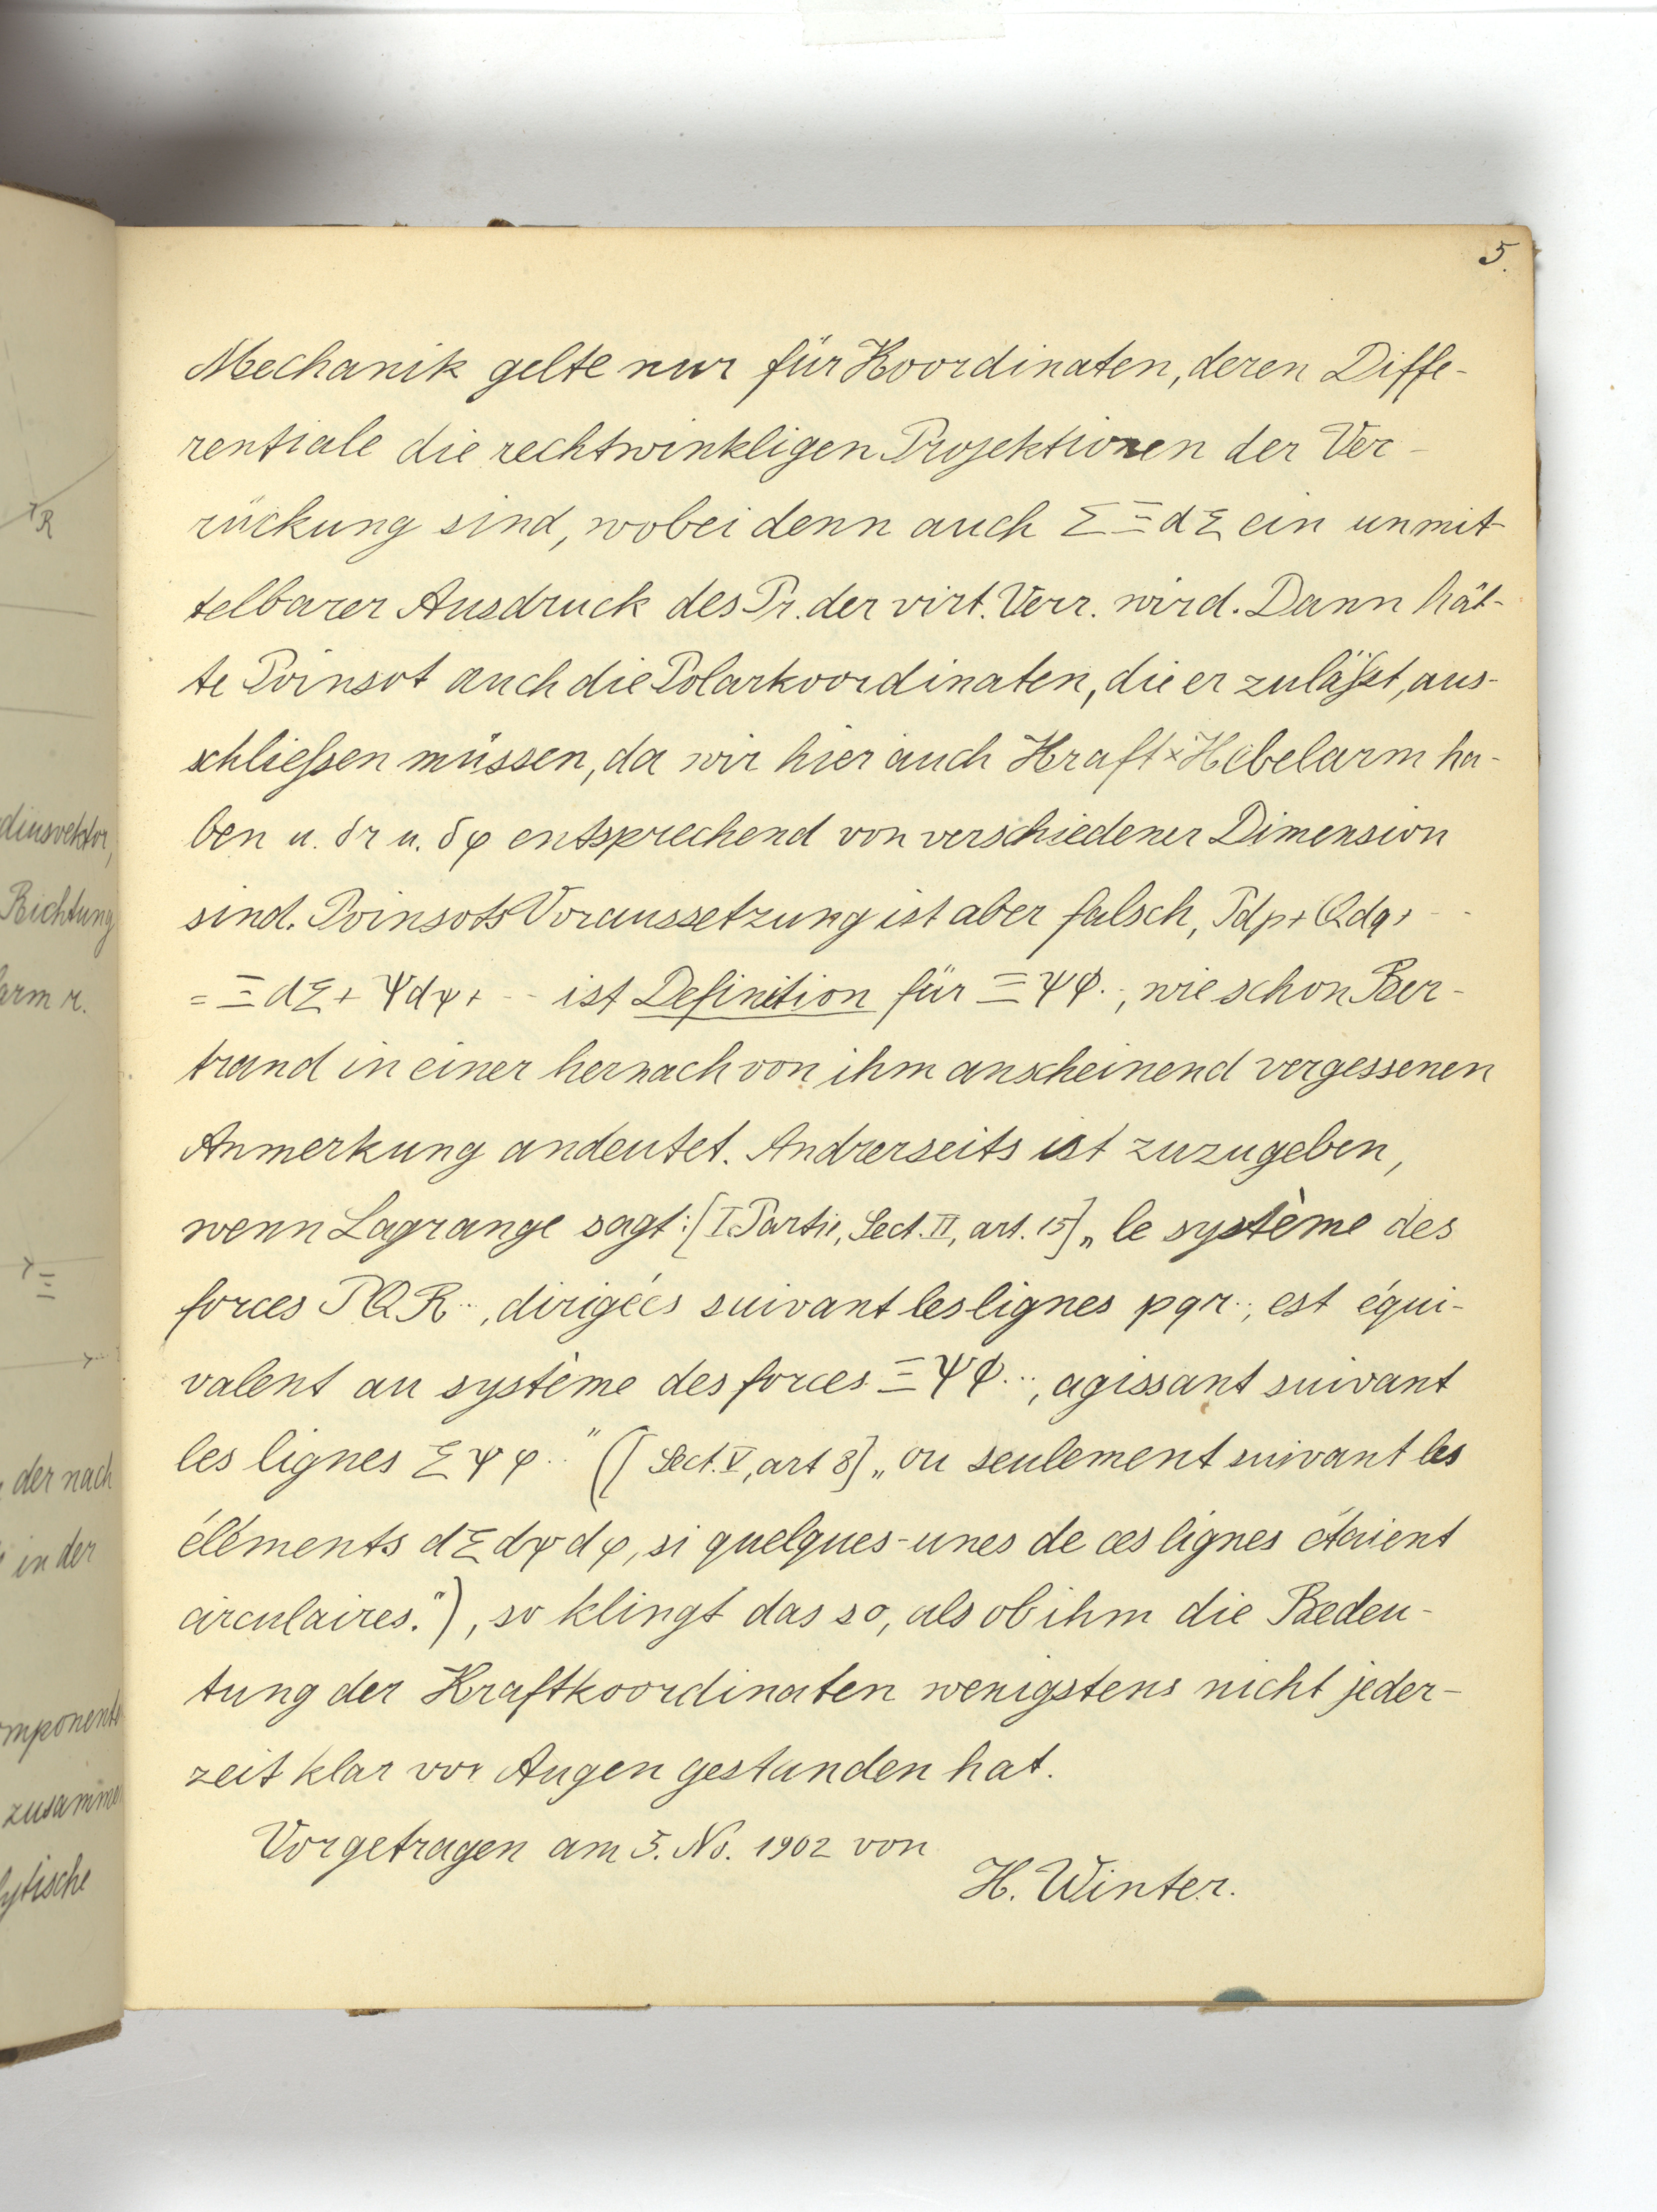 5.
Mechanik gelte nur für Koordinaten, deren Diffe-
rentiale die rechtwinkligen Projektionen der Ver-
rückung sind, wobei denn auch Σ Ξ dξ ein unmit-
telbarer Ausdruck des Pr. der virt. Verr. wird. Dann hät-
te Poinsot auch die Polarkoordinaten, die er zuläßt, aus-
schließen müssen, da wir hier auch Kraft × Hebelarm ha-
ben u. δr u. δφ entsprechend von verschiedener Dimension
sind. Poinsots Voraussetzung ist aber falsch, Pdp + Qdq + - -
= Ξ dξ + Ψdψ + -- ist Definition für Ξ Ψ Φ.., wie schon Ber-
trand in einer hernach von ihm anscheinend vergessenen
Anmerkung andeutet. Andrerseits ist zuzugeben,
wenn Lagrange sagt: [I. Partie, Sect. II, art. 15] „le système des
forces P Q R .., dirigées suivant les lignes p q r .., est équi-
valent au système des forces Ξ Ψ Φ ..., agissant suivant
les lignes ξ ψ φ .." ([Sect. V, art 8] „ou seulement suivant les
éléments dξ dψ dφ, si quelques-unes de ces lignes étaient
circulaires."), so klingt das so, als ob ihm die Bedeu-
tung der Kraftkoordinaten wenigstens nicht jeder-
zeit klar vor Augen gestanden hat.
Vorgetragen am 5. No. 1902 von
H. Winter.
dinsvektor,
Richtung
arm r.
der nach
in der
omponente
zusamme
lytische
R
Ξ